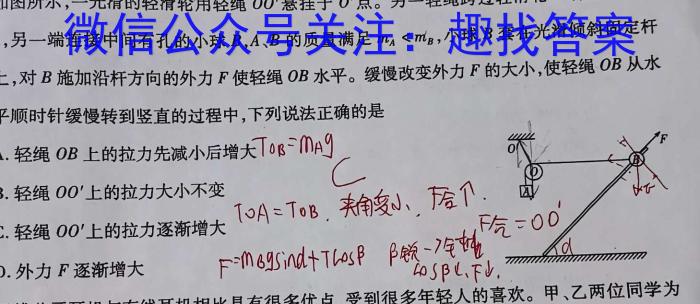 如图所示,一光滑的轻滑轮用轻绳OO'悬挂于O'点。另一轻绳跨过
微信公众号关注:趣找答案
,另一端连接中间有孔的小球B,A、B的质量满足m_A<m_B,小球B套在光滑倾斜固定杆
上,对B施加沿杆方向的外力F使轻绳OB水平。缓慢改变外力F的大小,使轻绳OB从水
平顺时针缓慢转到竖直的过程中,下列说法正确的是
A. 轻绳OB上的拉力先减小后增大 T_OB=m_Ag
C
B. 轻绳OO'上的拉力大小不变
T_OA=T_OB. 夹角变小, F合↑.
C. 轻绳OO'上的拉力逐渐增大
F合=OO'
D. 外力F逐渐增大
F=m_Bgsinα+Tcosβ
cosβ↓, F↓.
O'
O
A
B
F
G
α
受到很多年轻人的喜欢。甲、乙两位同学为